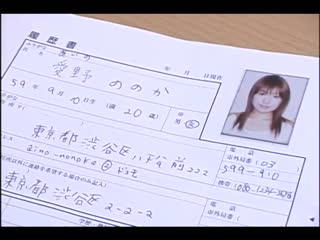 履歴書
年 月 日現在
あいの
愛野 ののか
59年 9月 10日生 (満 20歳)
男 女
電話
市外局番 (03)
東京都渋谷区ハチ公前222
599-910
aino-nonoka@ドコモ
東京都渋谷区2-2-2
電話
市外局番 (